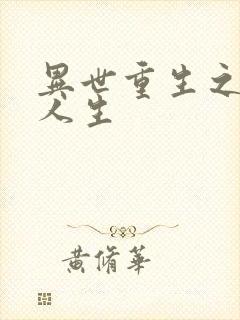 異世重生之
人生
黄脩華